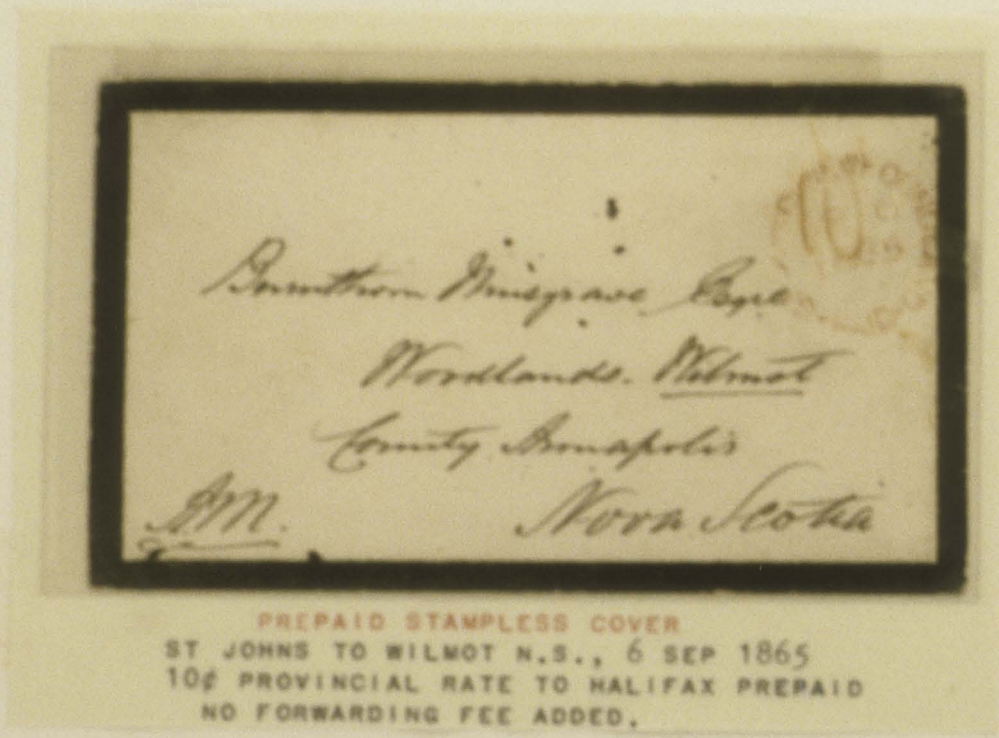 10
Musgrave Esqre
Woodlands. Wilmot
County Annapolis
AM.
Nova Scotia
PREPAID STAMPLESS COVER
ST JOHNS TO WILMOT N.S., 6 SEP 1865
10¢ PROVINCIAL RATE TO HALIFAX PREPAID
NO FORWARDING FEE ADDED.